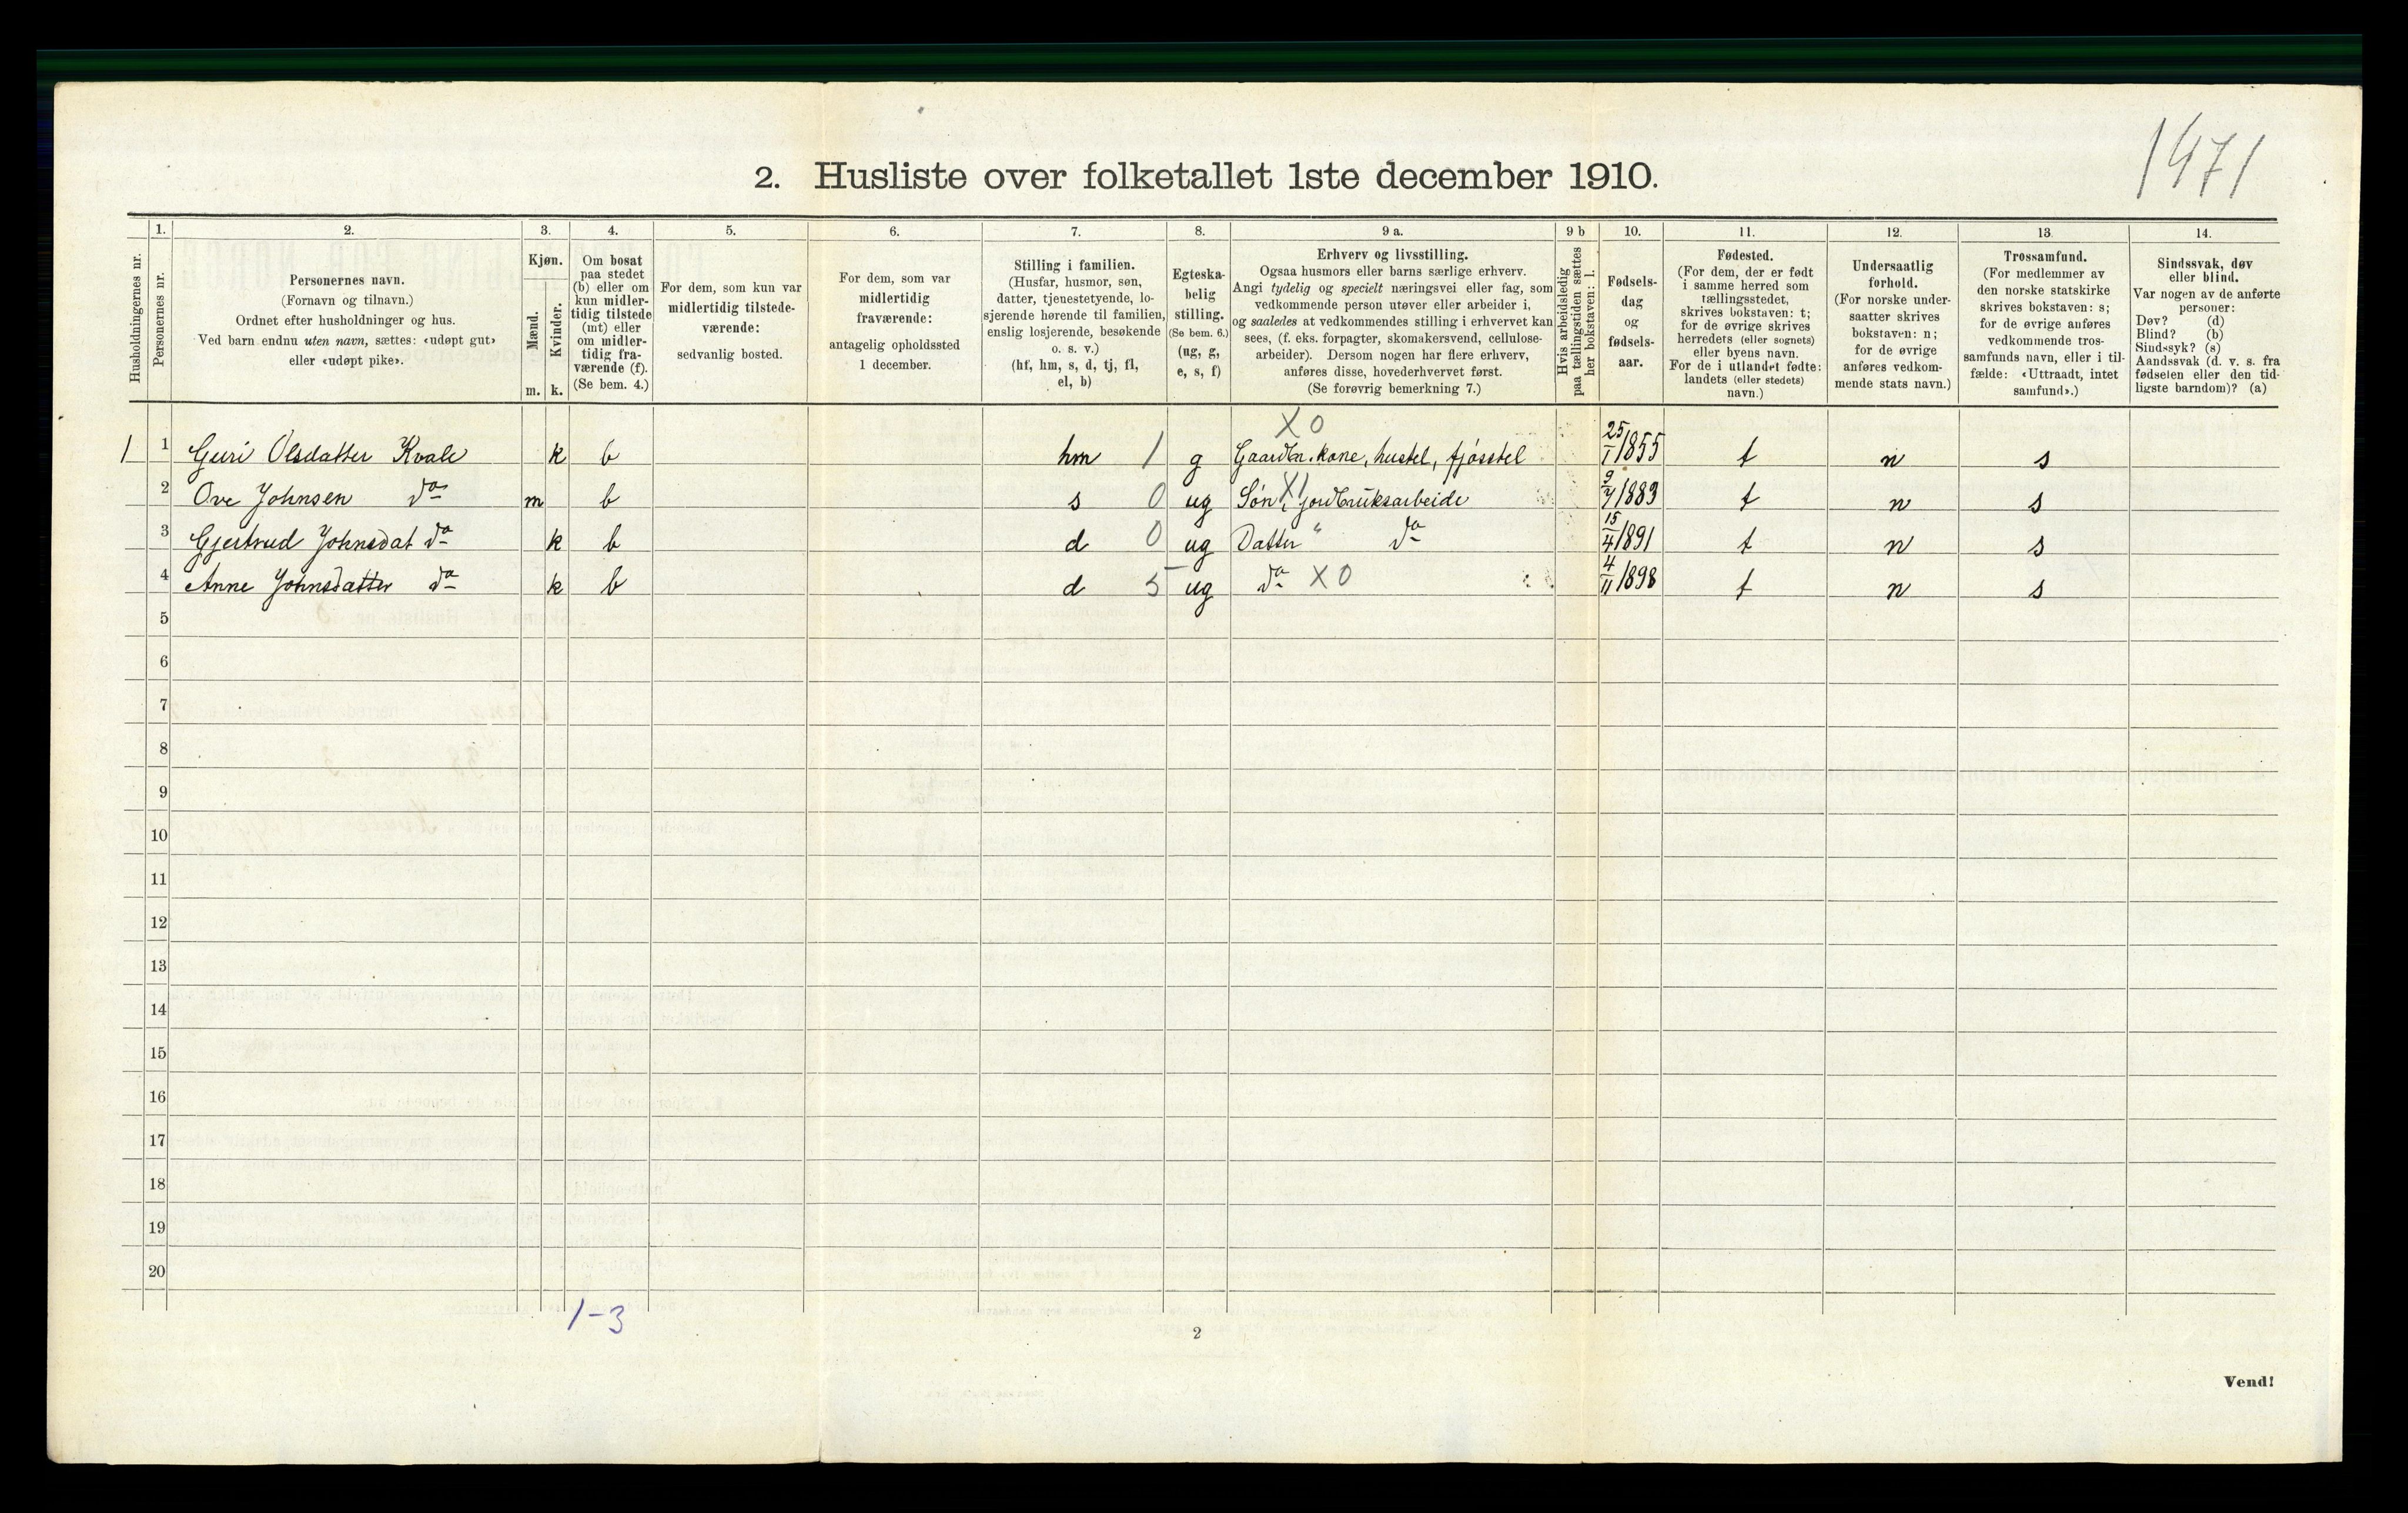 1471
2. Husliste over folketallet 1ste december 1910.
Husholdningernes nr.
1.
Personernes nr.
2.
Personernes navn.
(Fornavn og tilnavn.)
Ordnet efter husholdninger og hus.
Ved barn endnu uten navn, sættes: «udøpt gut»
eller «udøpt pike».
3.
Kjøn.
Mænd.
m.
Kvinder.
k.
4.
Om bosat
paa stedet
(b) eller om
kun midler-
tidig tilstede
(mt) eller
om midler-
tidig fra-
værende (f).
(Se bem. 4.)
5.
For dem, som kun var
midlertidig tilstede-
værende:
sedvanlig bosted.
6.
For dem, som var
midlertidig
fraværende:
antagelig opholdssted
1 december.
7.
Stilling i familien.
(Husfar, husmor, søn,
datter, tjenestetyende, lo-
sjerende hørende til familien,
enslig losjerende, besøkende
o. s. v.)
(hf, hm, s, d, tj, fl,
el, b)
8.
Egteska-
belig
stilling.
(Se bem. 6.)
(ug, g,
e, s, f)
9 a.
Erhverv og livsstilling.
Ogsaa husmors eller barns særlige erhverv.
Angi tydelig og specielt næringsvei eller fag, som
vedkommende person utøver eller arbeider i,
og saaledes at vedkommendes stilling i erhvervet kan
sees, (f. eks. forpagter, skomakersvend, cellulose-
arbeider). Dersom nogen har flere erhverv,
anføres disse, hovederhvervet først.
(Se forøvrig bemerkning 7.)
9 b
Hvis arbeidsledig
paa tællingstiden sættes
her bokstaven: l.
10.
Fødsels-
dag
og
fødsels-
aar.
11.
Fødested.
(For dem, der er født
i samme herred som
tællingsstedet,
skrives bokstaven: t;
for de øvrige skrives
herredets (eller sognets)
eller byens navn.
For de i utlandet fødte:
landets (eller stedets)
navn.)
12.
Undersaatlig
forhold.
(For norske under-
saatter skrives
bokstaven: n;
for de øvrige
anføres vedkom-
mende stats navn.)
13.
Trossamfund.
(For medlemmer av
den norske statskirke
skrives bokstaven: s;
for de øvrige anføres
vedkommende tros-
samfunds navn, eller i til-
fælde: «Uttraadt, intet
samfund».)
14.
Sindssvak, døv
eller blind.
Var nogen av de anførte
personer:
Døv? (d)
Blind? (b)
Sindssyk? (s)
Aandssvak (d. v. s. fra
fødselen eller den tid-
ligste barndom)? (a)
X 0
1 1 Guri Olsdatter Kvale k b hm 1 g Gaardbr. kone, hustel, fjösstel 25/1 1855 t n s
2 Ove Johnsen do m b s 0 ug Søn, X1 jordbruksarbeide 9/4 1883 t n s
3 Gjertrud Johnsdat do k b d 0 ug Datter " do 15/4 1891 t n s
4 Anne Johnsdatter do k b d 5 ug do X 0 4/11 1898 t n s
5
6
7
8
9
10
11
12
13
14
15
16
17
18
19
20
1-3
2
Vend!